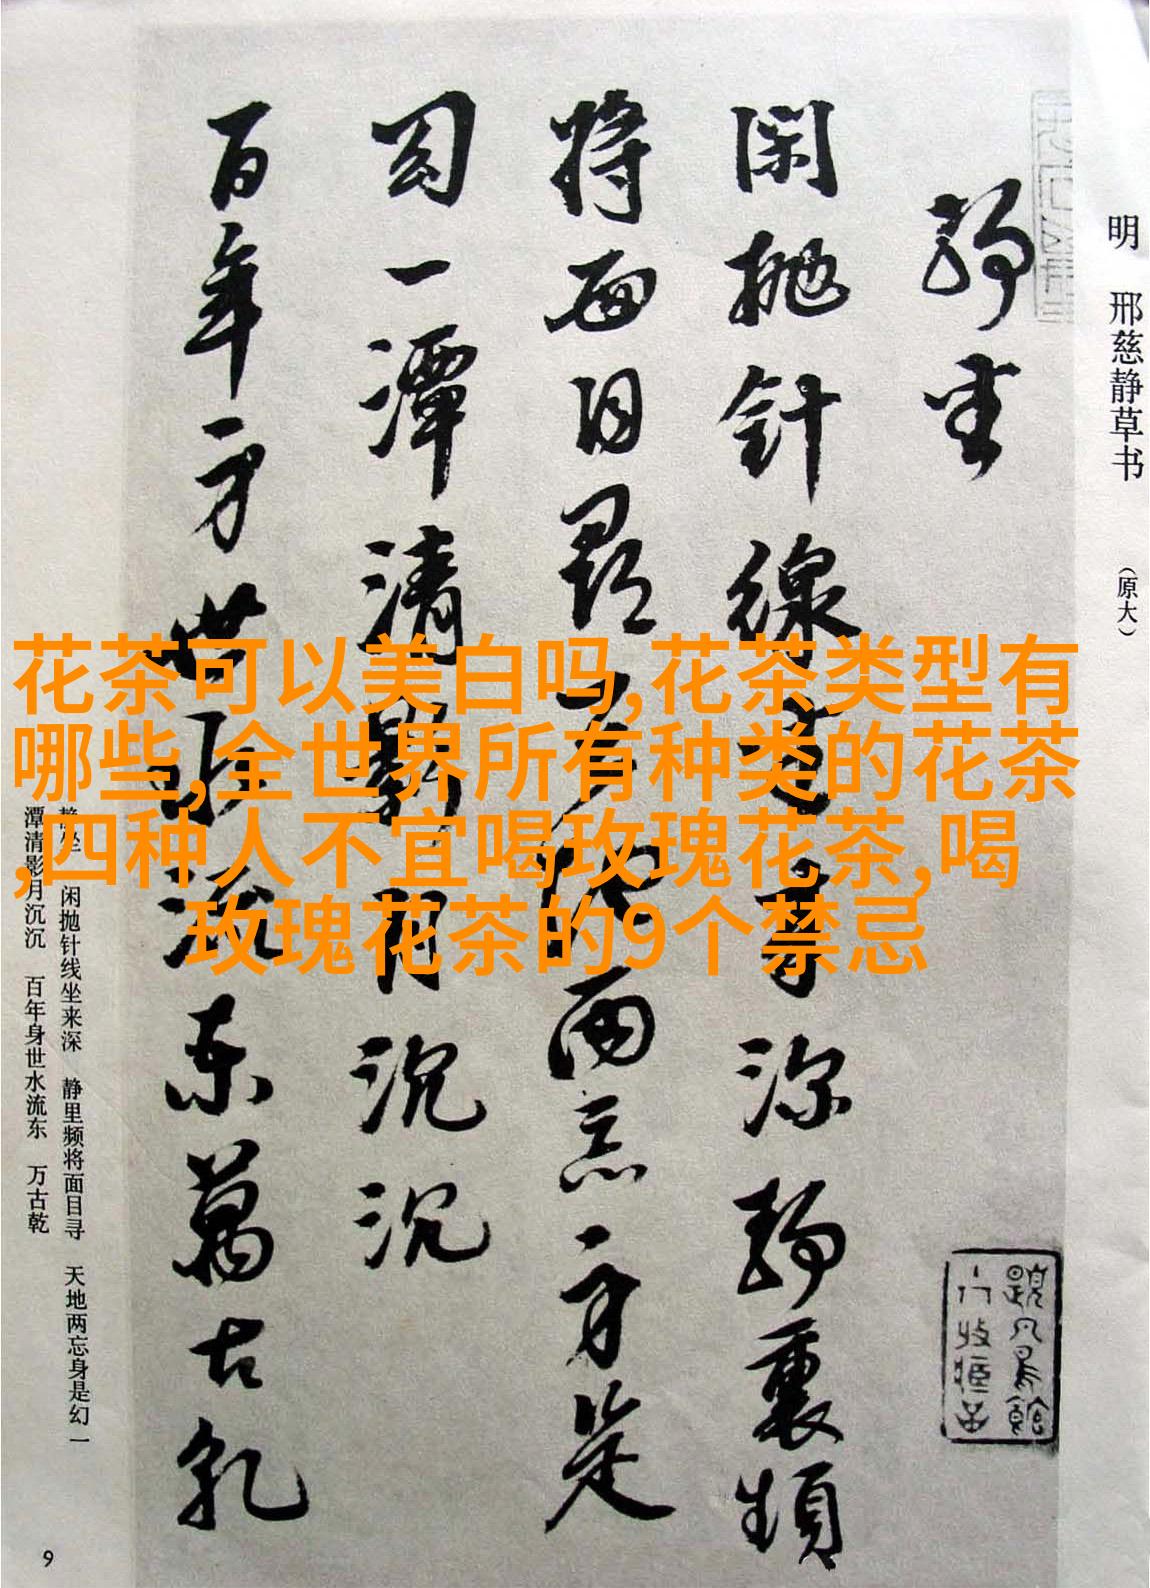 明 邢慈静草书 （原大）
静坐
閑抛針線坐来深静裏頻
将面目尋天地兩忘身是
幻一潭清影月沉沉
百年身世水流東萬古乾
花茶可以美白吗,花茶类型有
哪些,全世界所有种类的花茶
,四种人不宜喝玫瑰花茶,喝
玫瑰花茶的9个禁忌
静坐 闲抛针线坐来深 静里频将面目寻 天地两忘身是幻 一
潭清影月沉沉 百年身世水流东 万古乾
9